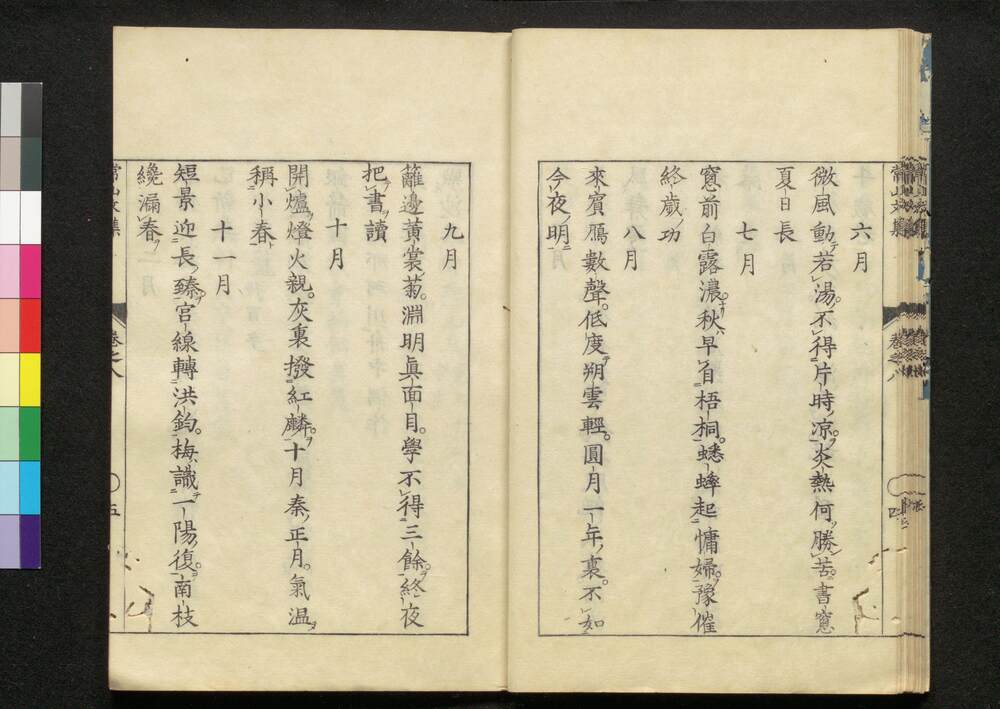 六月
微風動若湯。不得片時凉。炎熱何勝苦。書窻
夏日長
七月
窻前白露濃。秋早自梧桐。蟋蟀起慵婦。豫催
終歳功
八月
來賓鴈數聲。低度朔雲輕。圓月一年裏。不如
今夜明
九月
籬邊黄裳菊。淵明眞面目。學不得三餘。終夜
把書讀
十月
開爐燈火親。灰裏撥紅麟。十月秦正月。氣温
稱小春
十一月
短景迎長臻。宮線轉洪鈞。梅識一陽復。南枝
纔漏春
常山文集
卷之八
五